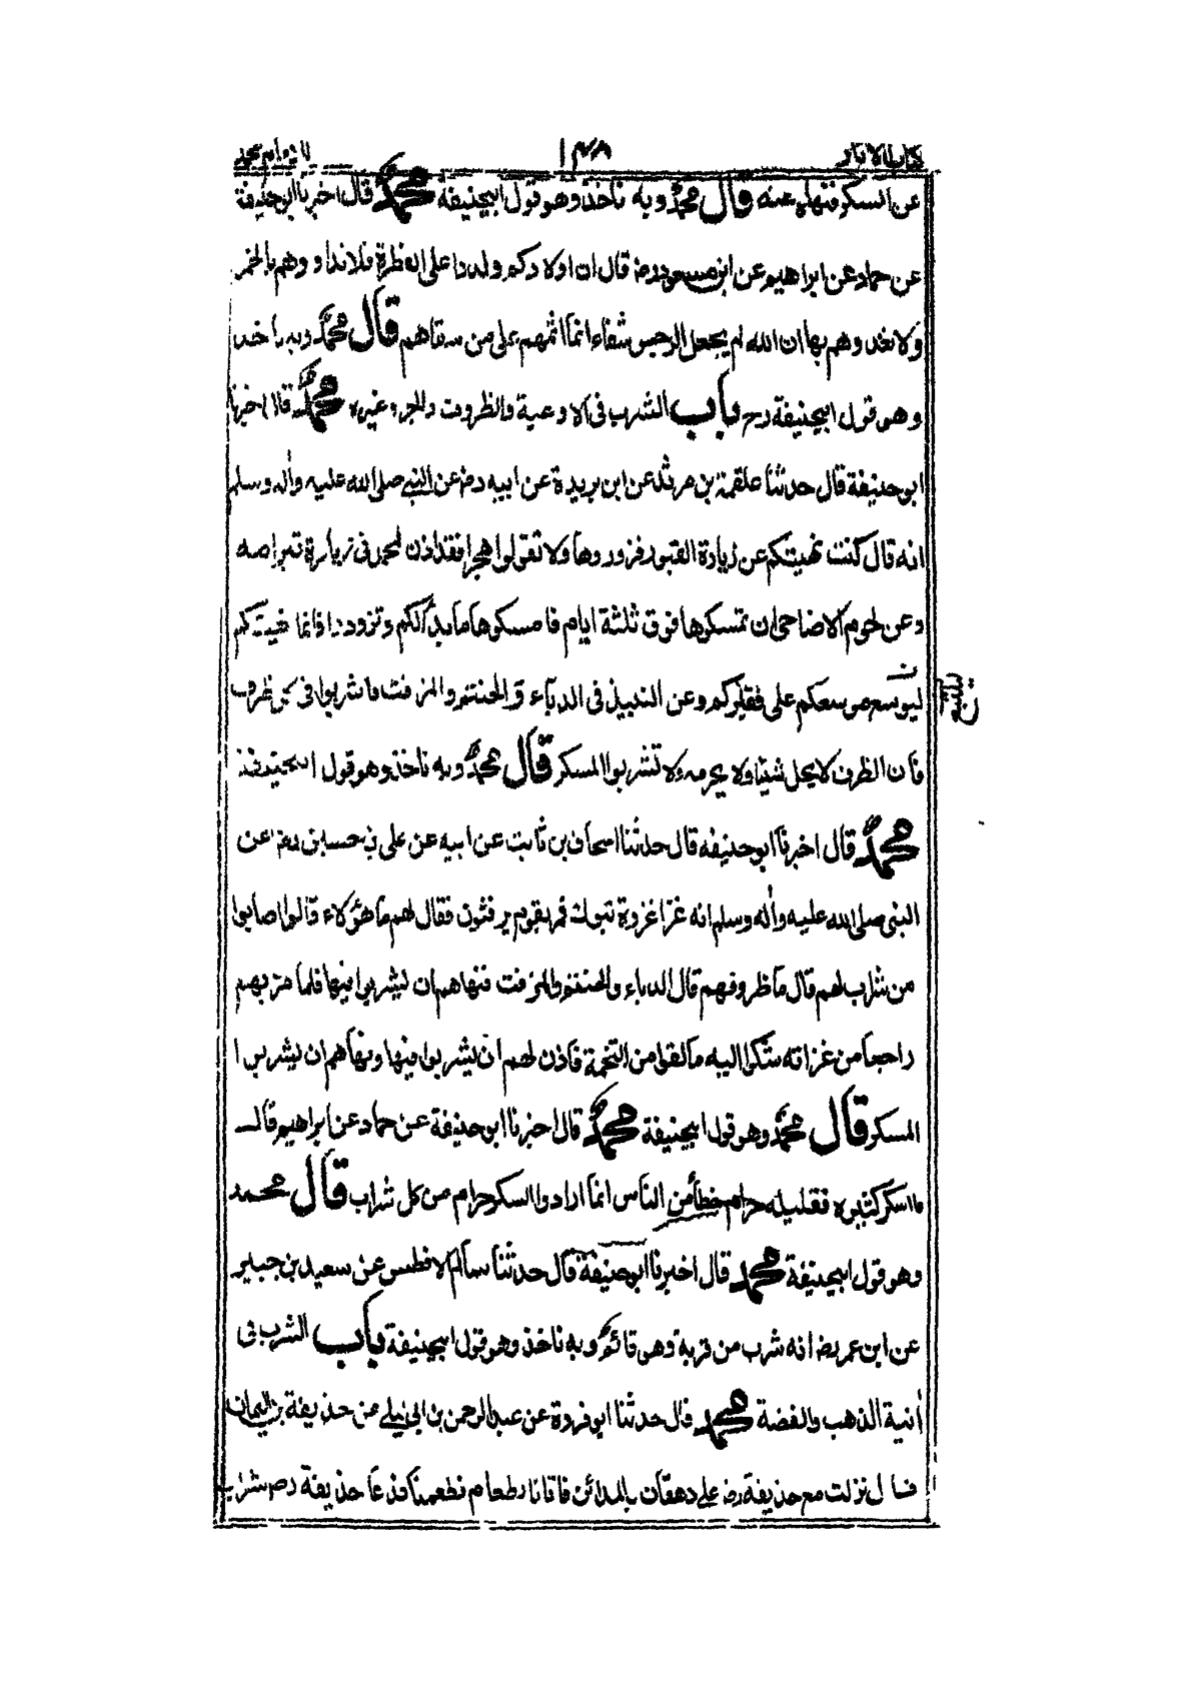 كتاب الاثار ١٤٨ لامام محمد
عن السكر فنهاه عنه قال محمد وبه ناخذ وهو قول ابيحنيفة محمد قال اخبرنا ابوحنيفة
عن حماد عن ابراهيم عن ابن مسعود رض قال ان اولادكم ولدوا على الفطرة فلا تداووهم بالخمر
ولا تغذوهم بها ان الله لم يجعل الرجس شفاء انما اثمهم على من سقاهم قال محمد وبه ناخذ
وهو قول ابيحنيفة رح باب الشرب فى الاوعية والظروف والجر وغيره محمد قال اخبرنا
ابوحنيفة قال حدثنا علقمة بن مرثد عن ابن بريدة عن ابيه رض عن النبي صلى الله عليه واله وسلم
انه قال كنت نهيتكم عن زيارة القبور فزوروها ولا تقولوا هجرا فقد اذن لمحمد فى زيارة قبر امه
وعن لحوم الاضاحى ان تمسكوها فوق ثلثة ايام فامسكوها ما بدالكم وتزودوا فانما نهيتكم
ليوسع موسعكم على فقيركم وعن النبيذ فى الدباء والحنتم والمزفت فاشربوا فى كل ظرف
فان الظرف لا يحل شيئا ولا يحرمه ولا تشربوا المسكر قال محمد وبه ناخذ وهو قول ابيحنيفة
محمد قال اخبرنا ابوحنيفه قال حدثنا اسحاق بن ثابت عن ابيه عن على بن حسين رض عن
النبى صلى الله عليه واله وسلم انه غزا غزوة تبوك فمر بقوم يرفثون فقال لهم ما هؤلاء قالوا اصابوا
من شراب لهم قال ما ظروفهم قال الدباء والحنتم والمزفت فنهاهم ان يشربوا فيها فلما مر بهم
راجعا من غزاته شكوا اليه ما لقوا من التخمة فاذن لهم ان يشربوا فيها ونهاهم ان يشربوا
المسكر قال محمد وهو قول ابيحنيفة محمد قال اخبرنا ابوحنيفة عن حماد عن ابراهيم قال
ما اسكر كثيره فقليله حرام خطأ من الناس انما ارادوا السكر حرام من كل شراب قال محمد
وهو قول ابيحنيفة محمد قال اخبرنا ابوحنيفة قال حدثنا سالم الافطس عن سعيد بن جبير
عن ابن عمر رض انه شرب من قربة وهو قائم وبه ناخذ وهو قول ابيحنيفة باب الشرب فى
انية الذهب والفضة محمد قال حدثنا ابو فروة عن عبد الرحمن بن ابى ليلى عن حذيفة بن اليمان
قال نزلت مع حذيفة رض على دهقان بالمدائن فاتانا بطعام فطعمنا فدعا حذيفة رض بشراب